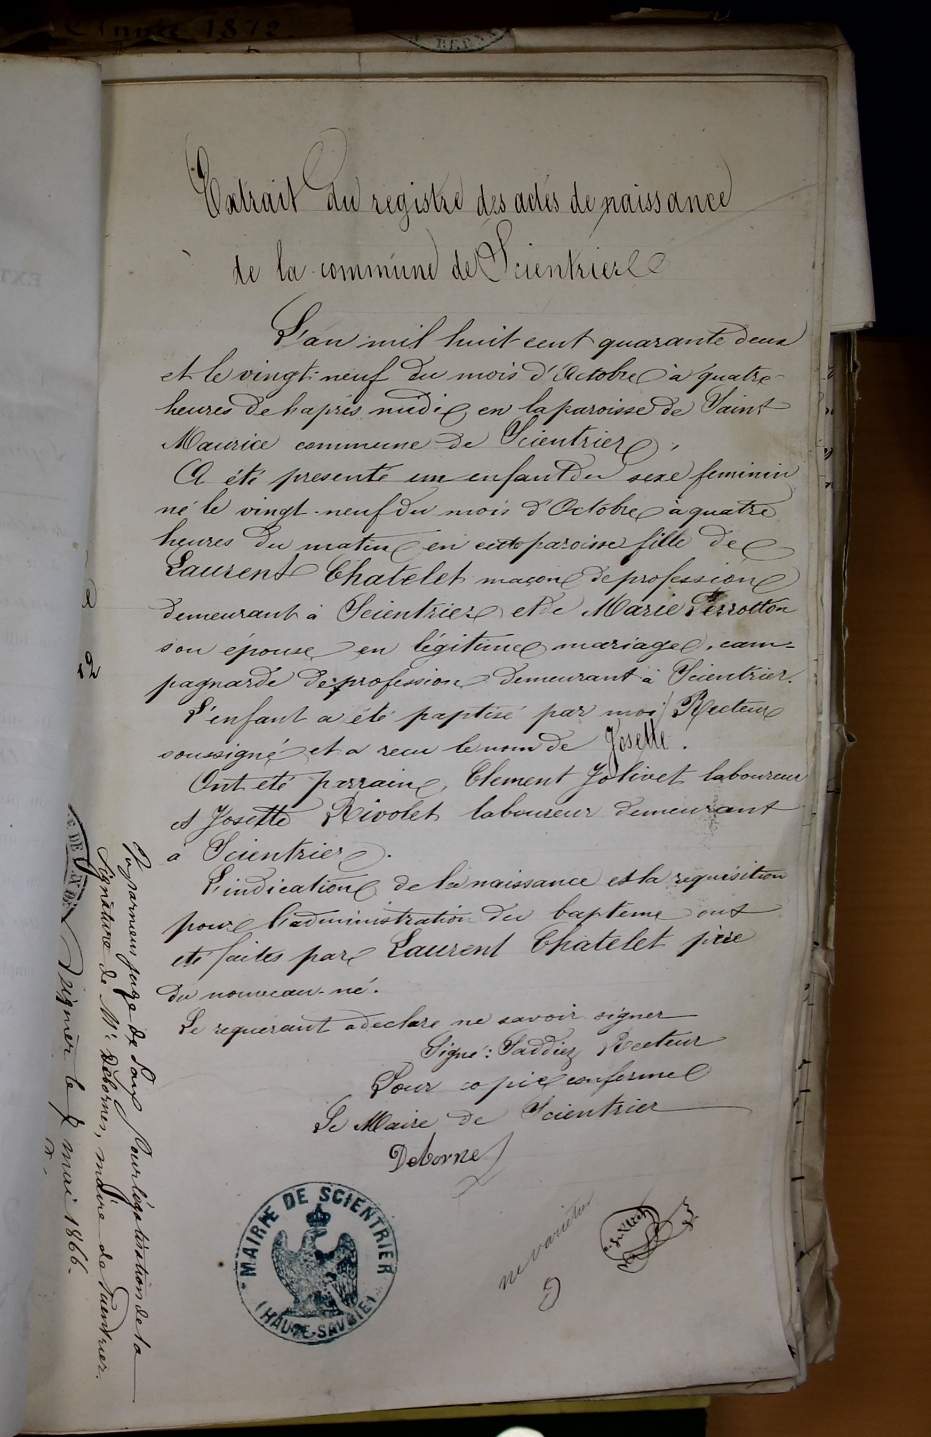 Année 1872
Extrait du registre des actes de naissance
de la commune de Scientrier
L'an mil huit cent quarante deux
et le vingt-neuf du mois d'Octobre à quatre
heures de l'après midi, en la paroisse de Saint
Maurice commune de Scientrier,
A été presenté un enfant du sexe feminin
né le vingt-neuf du mois d'Octobre à quatre
heures du matin en cette paroisse fille de
Laurent Chatelet maçon de profession
demeurant à Scientrier et de Marie Perrotton
son épouse en légitime mariage, cam-
pagnarde de profession demeurant à Scientrier.
L'enfant a été paptisé par moi Recteur
soussigné et a recu le nom de Josette.
Ont eté parrain, Clement Jolivet laboureur
et Josette Rivolet laboureur demeurant
à Scientrier.
L'indication de la naissance et la requisition
pour l'administration du bapteme ont
eté faites par Laurent Chatelet père
du nouveau-né.
Le requerant a declare ne savoir signer
Signé: Saddier Recteur
Pour copie conforme
Le Maire de Scientrier
Deborne
MAIRIE DE SCIENTRIER
(HAUTE-SAVOIE)
ne varietur
juge de Paix Pour légalisation de la
Signature de Mr. Debornes, maire de Scientrier.
le 7 mai 1866.